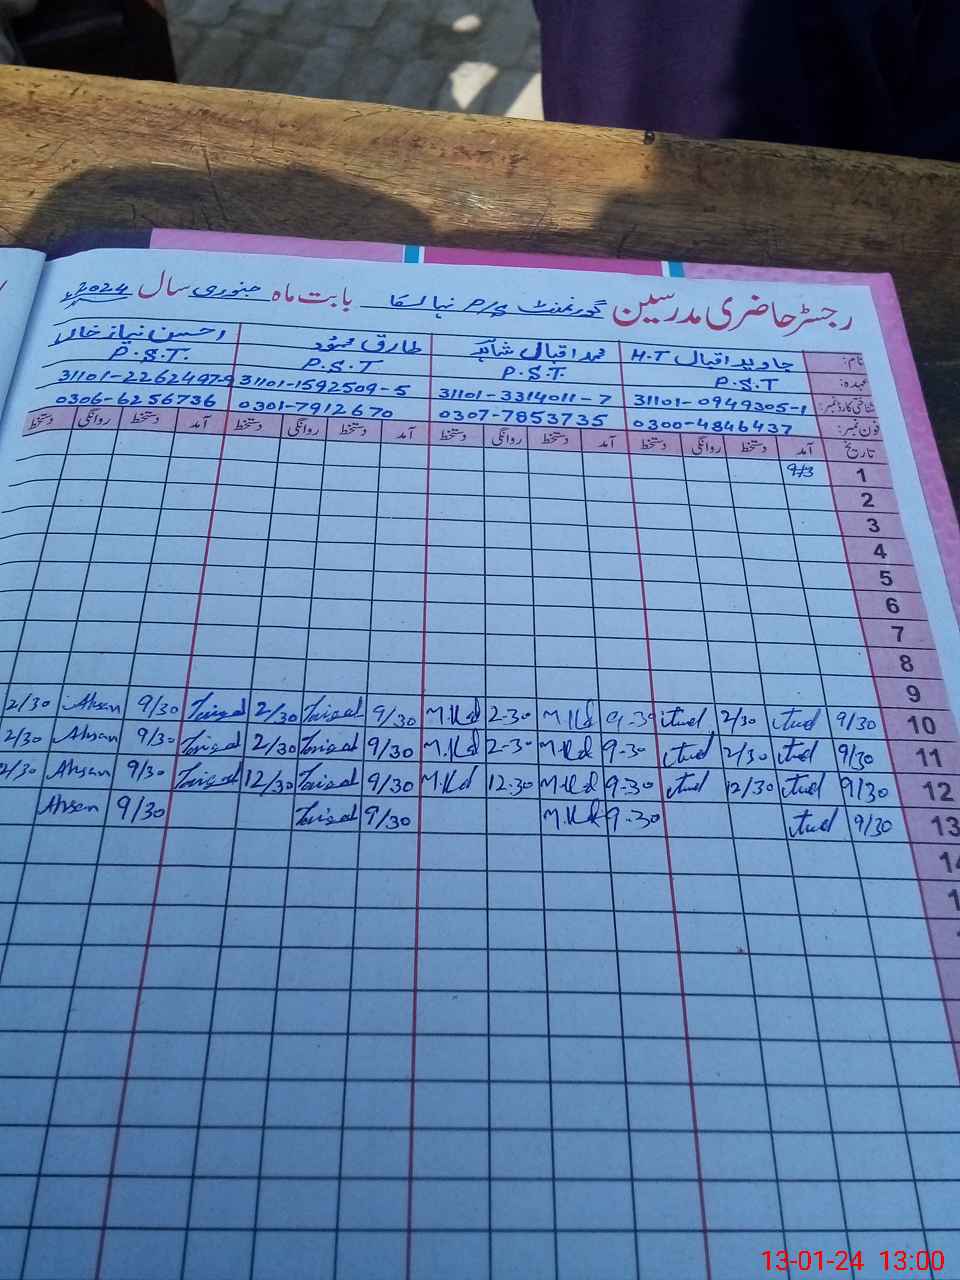 رجسٹر حاضری مدرسین گورنمنٹ P/S بابت ماہ جنوری سال 2024ء
نام: جاوید اقبال H.T محمد اقبال شاہد طارق محمود احسن نیاز خان
عہدہ: P.S.T P.S.T. P.S.T P.S.T.
شناختی کارڈ نمبر: 31101-0949305-1 31101-3314011-7 31101-1592509-5 31101-2262497-9
فون نمبر: 0300-4846437 0307-7853735 0301-7912670 0306-6256736
تاریخ آمد دستخط روانگی دستخط آمد دستخط روانگی دستخط آمد دستخط روانگی دستخط آمد دستخط روانگی دستخط
1
2
3
4
5
6
7
8
9
10 9/30 2/30 9-30 M.Kd 2-30 M.Kd 9/30 2/30 9/30 Ahsan 2/30
11 9/30 2/30 9-30 M.Kd 2-30 M.Kd 9/30 2/30 9/30 Ahsan 2/30
12 9/30 12/30 9-30 M.Kd 12-30 M.Kd 9/30 12/30 9/30 Ahsan 2/30
13 9/30 9-30 M.Kd 9/30 9/30 Ahsan
14
13-01-24 13:00